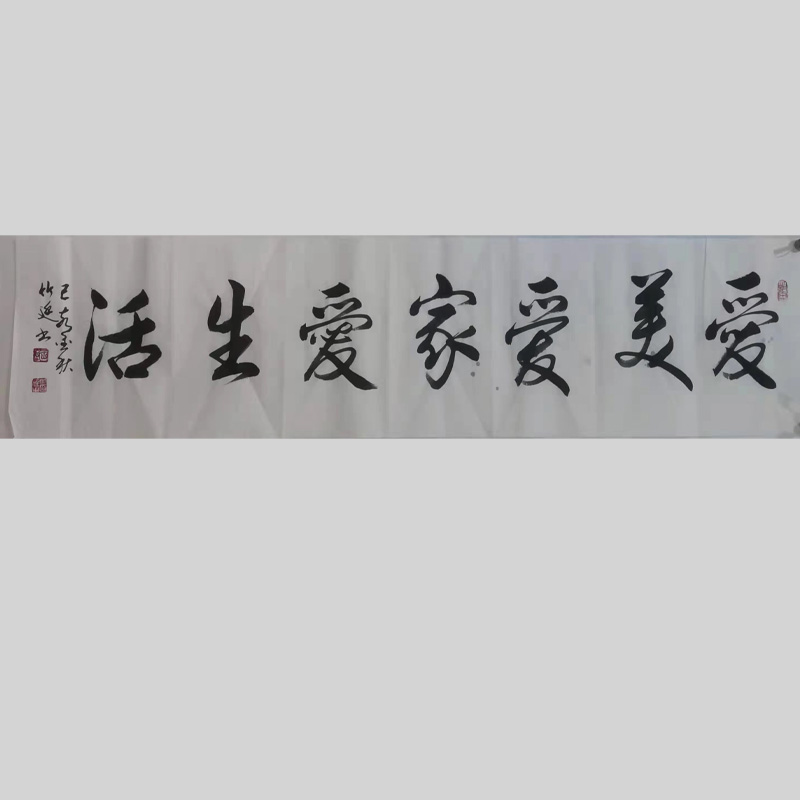 愛美愛家愛生活
己亥金秋
竹延书